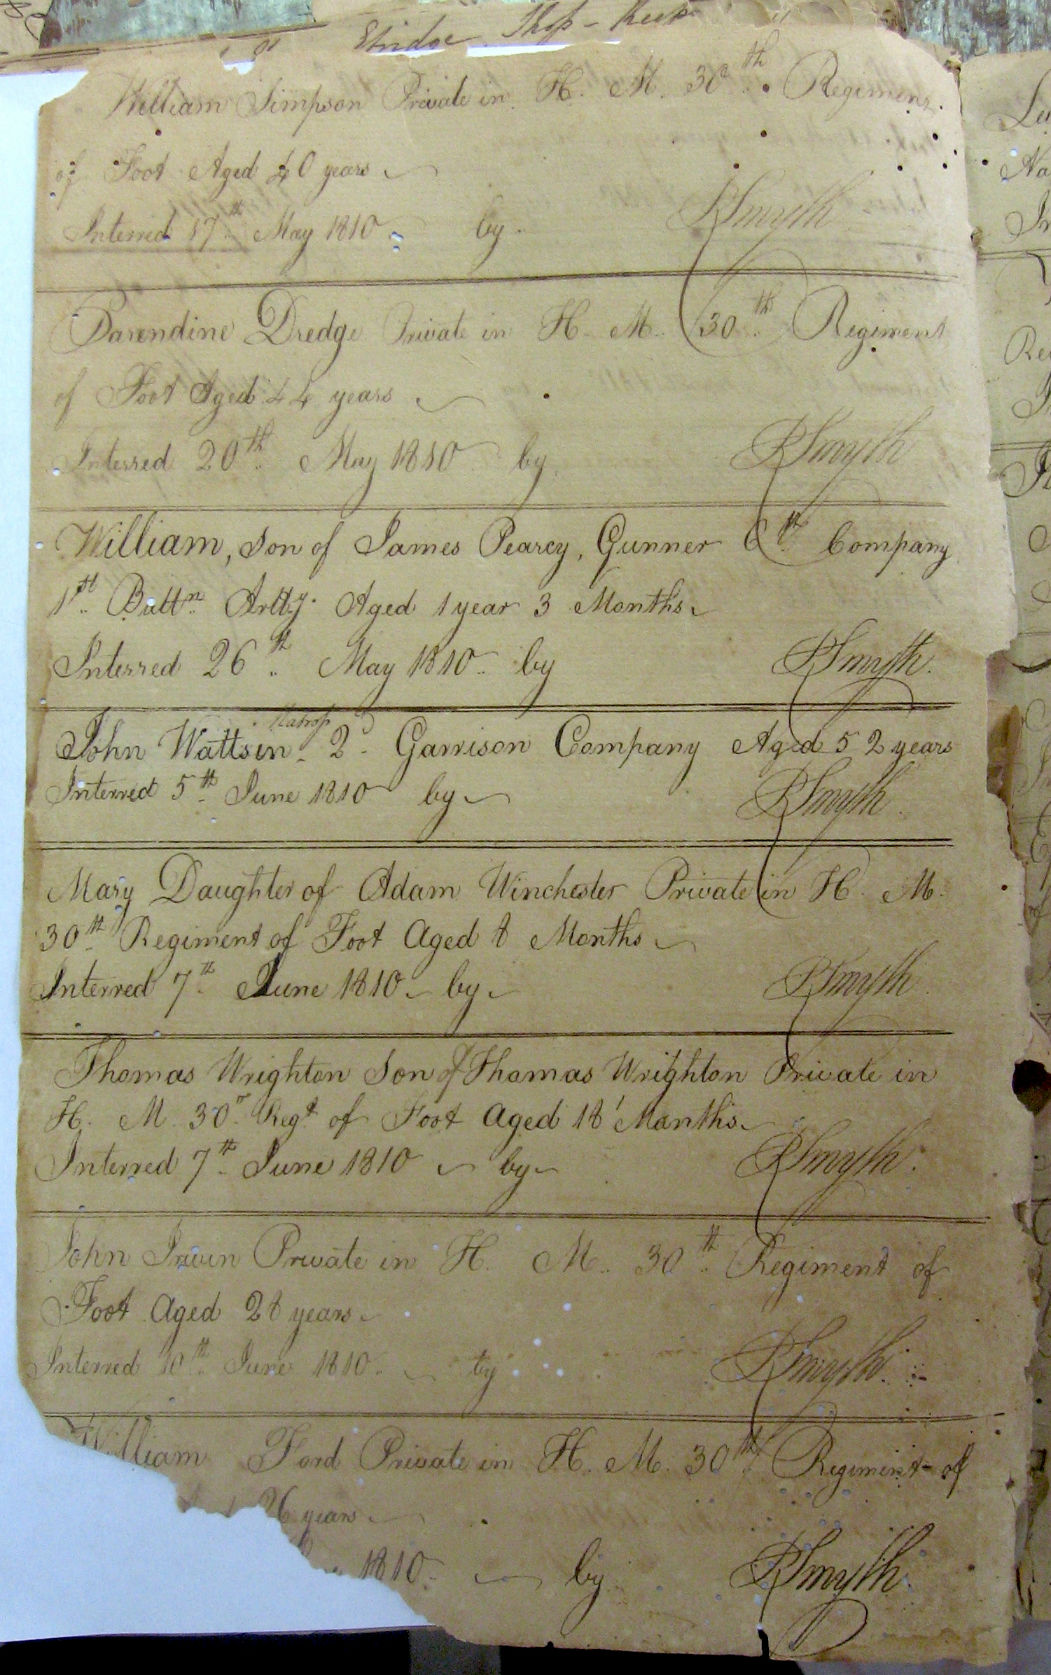 William Simpson Private in H. M. 30th Regiment
of Foot Aged 40 years
Interred 17th May 1810 by RSmyth
Parendine Dredge Private in H. M. 30th Regiment
of Foot Aged 44 years
Interred 20th May 1810 by RSmyth
William, Son of James Pearcy, Gunner 6th Company
1st Battn Artty. Aged 1 year 3 Months
Interred 26th May 1810 by RSmyth
Matross
John Wattsin 2d Garrison Company Aged 52 years
Interred 5th June 1810 by RSmyth
Mary Daughter of Adam Winchester Private in H. M.
30th Regiment of Foot Aged 8 Months
Interred 7th June 1810 by RSmyth
Thomas Wrighton Son of Thomas Wrighton Private in
H. M. 30th Regt of Foot Aged 18 Months
Interred 7th June 1810 by RSmyth
John Irwin Private in H. M. 30th Regiment of
Foot Aged 28 years
Interred 10th June 1810 by RSmyth
William Ford Private in H. M. 30th Regiment of
26 years
1810 by RSmyth